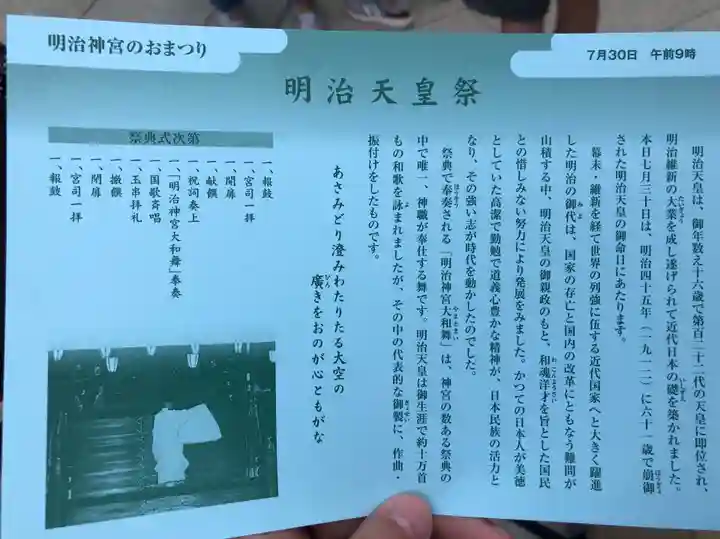 明治神宮のおまつり
7月30日 午前9時
明治天皇祭
明治天皇は、御年数え十六歳で第百二十二代の天皇に即位され、
明治維新の大業を成し遂げられて近代日本の礎を築かれました。
本日七月三十日は、明治四十五年（一九一二）に六十一歳で崩御
された明治天皇の御命日にあたります。
幕末・維新を経て世界の列強に伍する近代国家へと大きく躍進
した明治の御代は、国家の存亡と国内の改革にともなう難問が
山積する中、明治天皇の御親政のもと、和魂洋才を旨とした国民
との惜しみない努力により発展をみました。かつての日本人が美徳
としていた高潔で勤勉で道義心豊かな精神が、日本民族の活力と
なり、その強い志が時代を動かしたのでした。
祭典で奉奏される「明治神宮大和舞」は、神宮の数ある祭典の
中で唯一、神職が奉仕する舞です。明治天皇は御生涯で約十万首
もの和歌を詠まれましたが、その中の代表的な御製に、作曲・
振付けをしたものです。
あさみどり澄みわたりたる大空の
廣きをおのが心ともがな
祭典式次第
一、報鼓
一、宮司一拝
一、開扉
一、献饌
一、祝詞奏上
一、「明治神宮大和舞」奉奏
一、国歌斉唱
一、玉串拝礼
一、撤饌
一、閉扉
一、宮司一拝
一、報鼓